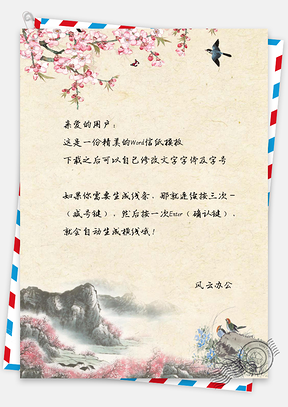 亲爱的用户：
这是一份精美的Word信纸模板
下载之后可以自己修改文字字体及字号
如果你需要生成线条，那就连续按三次－
（减号键），然后按一次Enter（确认键），
就会自动生成横线哦！
风云办公